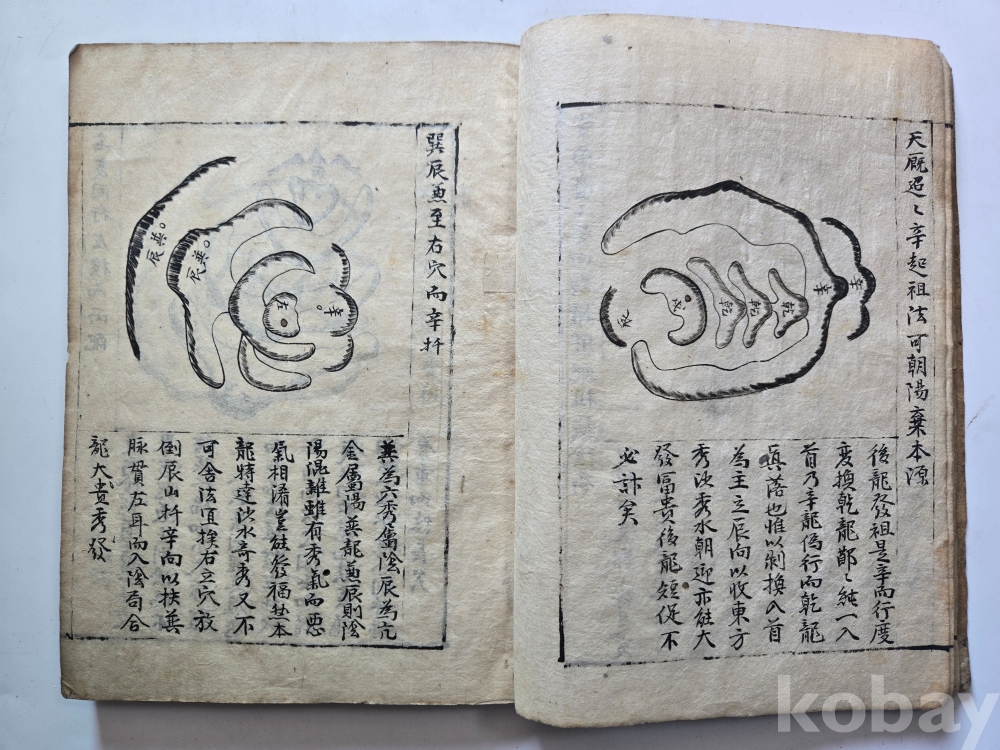 天厩迢〻辛起祖法可朝陽棄本源
辛
辛
乾
乾
乾
戌
辰
後龍發祖是辛而行度
度換乾龍鄭〻純一入
首乃辛龍僞行而乾龍
眞落也惟以剝換入首
為主立辰向以收東方
秀次秀水朝迎亦能大
發冨貴後龍短促不
必計矣
巽辰兼至右穴而辛扦
辰巽
辰巽
右
辛
巽為六秀屬陰辰為亢
金屬陽巽龍兼辰則陰
陽混雜雖有秀氣而惡
氣相淆豈能發福然本
龍特達沙水奇秀又不
可舍法宜挨右立穴放
倒辰山扦辛向以扶巽
脉貫左耳而入陰茍合
龍大貴秀發
kobay